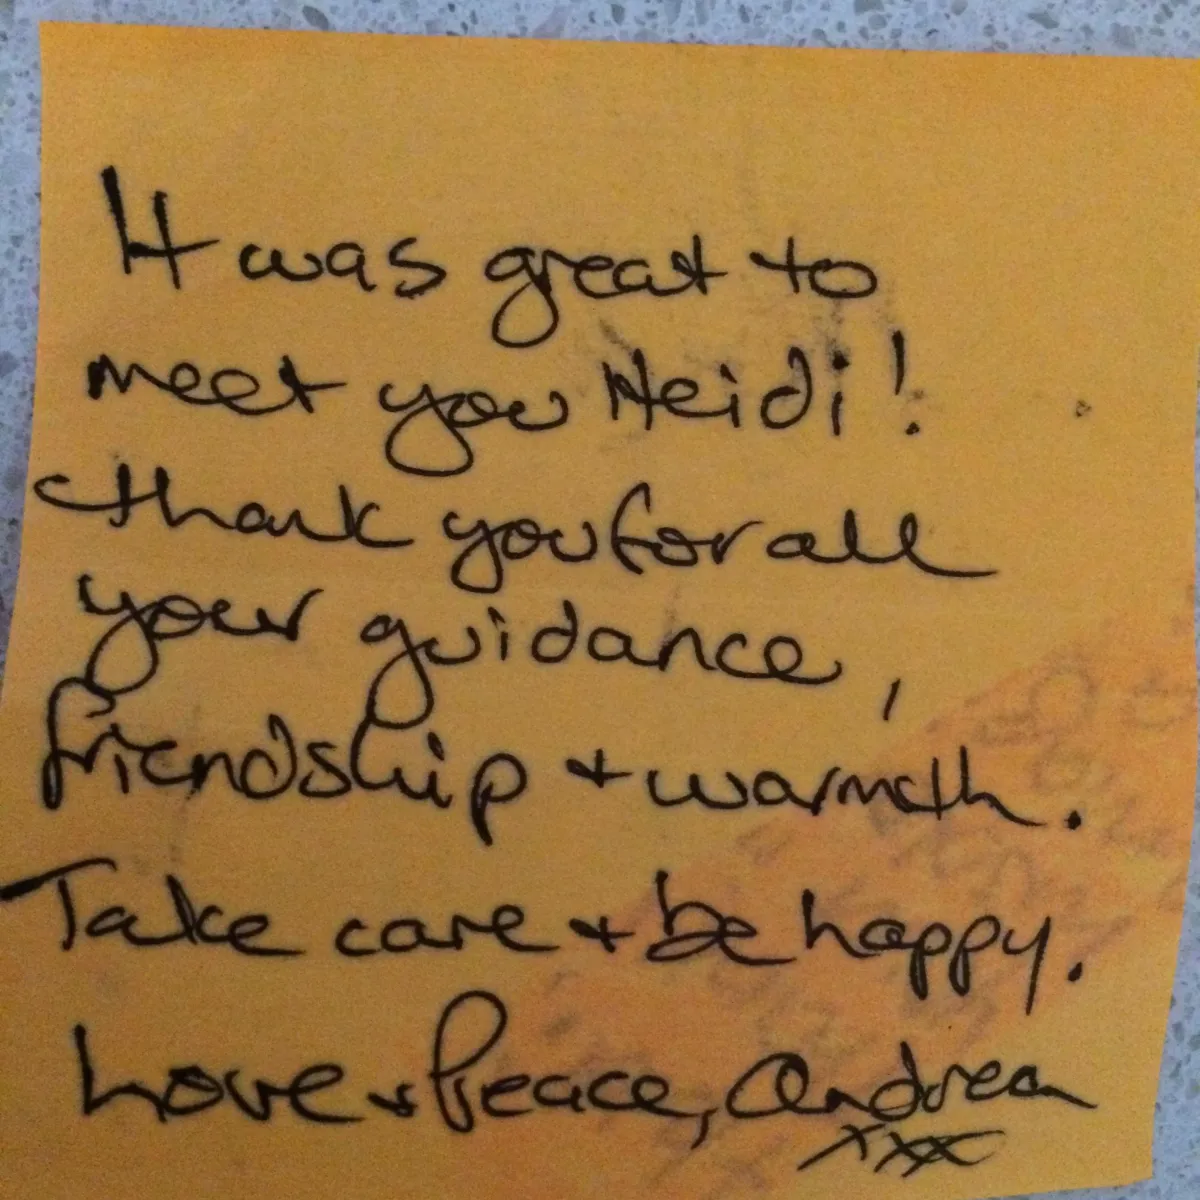 It was great to
meet you Heidi!
thank you for all
your guidance,
friendship + warmth.
Take care + be happy.
Love + Peace, Andrea
xxx